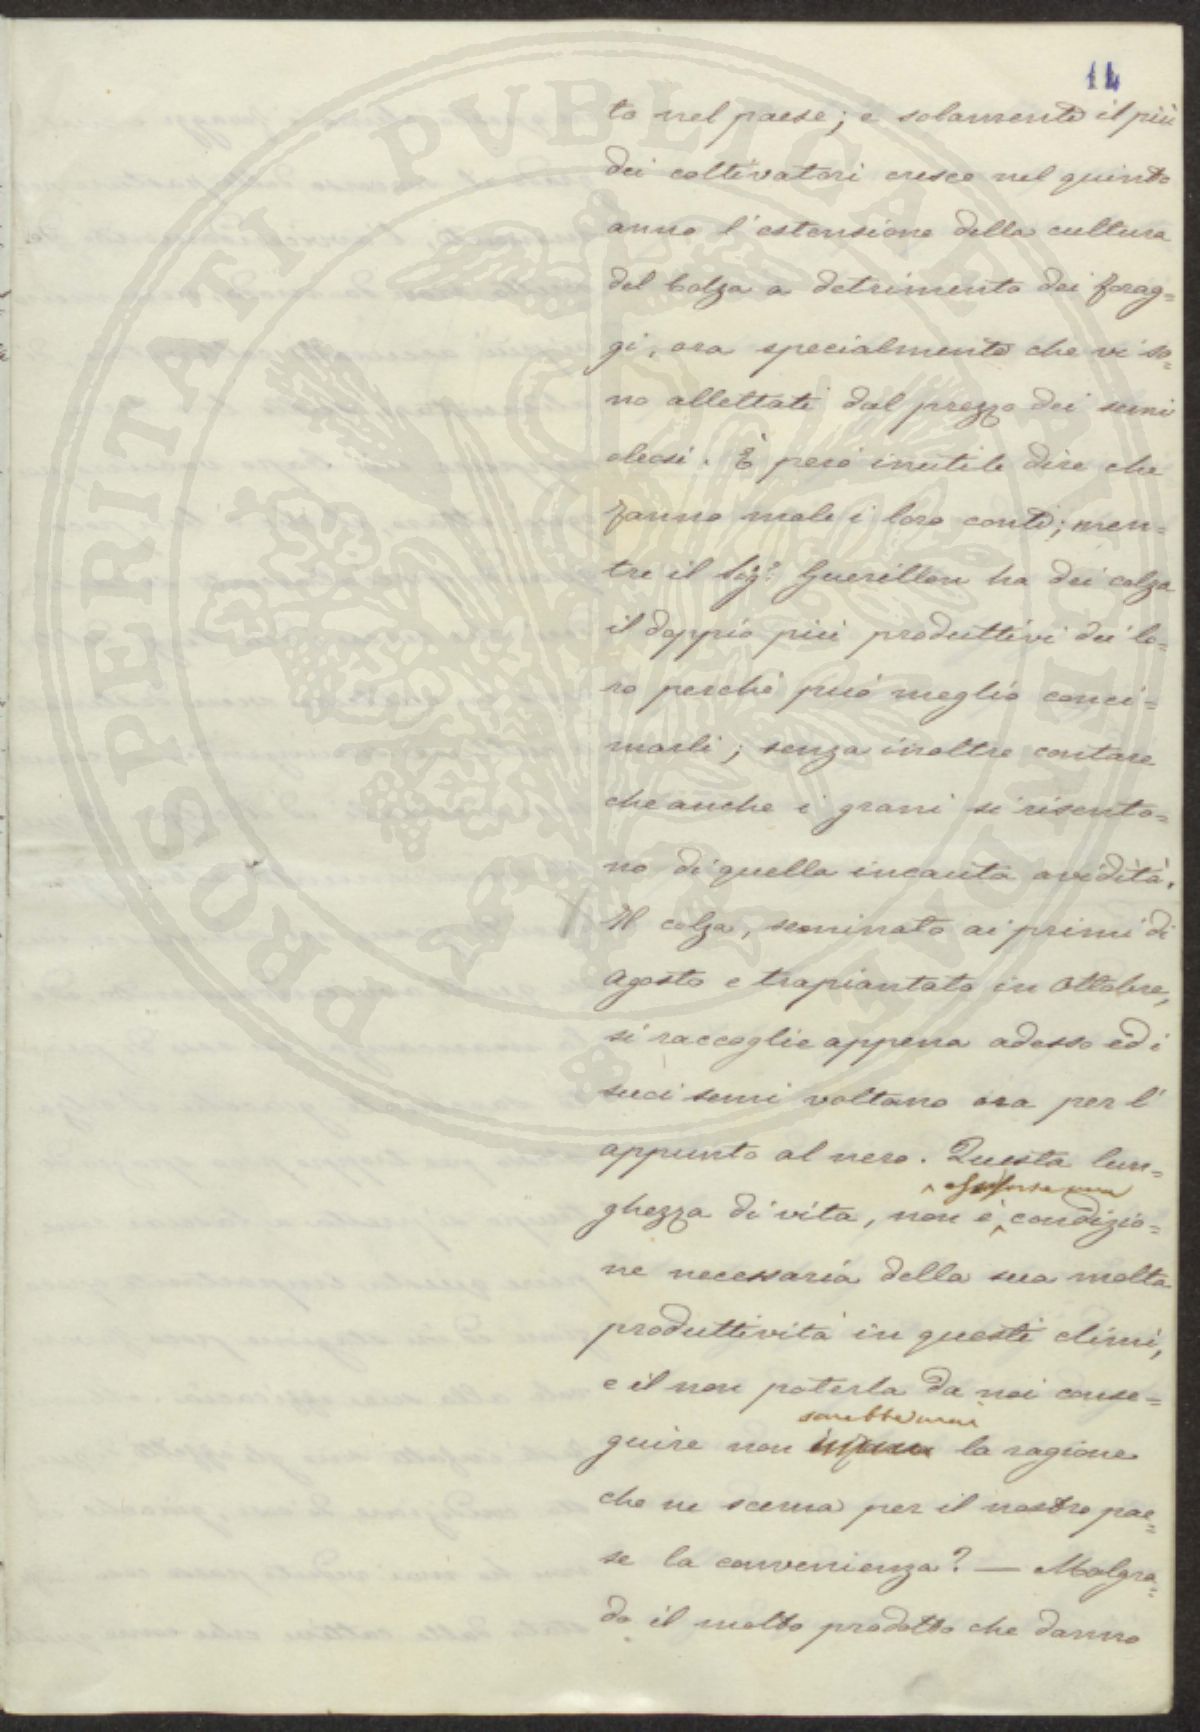 14
PROSPERITATI PVBLICAE
to nel paese; e solamente il più
dei coltivatori cresce nel quinto
anno l'estensione della cultura
del Colza a detrimento dei forag=
gi, ora specialmente che vi so=
no allettati dal prezzo dei semi
oleosi. È però inutile dire che
fanno male i loro conti; men=
tre il Sig.r Guerillon ha dei colza
il doppio più produttivi dei lo=
ro perchè può meglio conci=
marli; senza inoltre contare
che anche i grani si risento=
no di quella incauta avidità.
Il colza, seminato ai primi di
Agosto e trapiantato in Ottobre,
si raccoglie appena adesso ed i
suoi semi voltano ora per l'
appunto al nero. Questa lun=
forse una
ghezza di vita, non è condizio=
ne necessaria della sua molta
produttività in questi climi,
e il non poterla da noi conse=
sarebbe mai
guire non la ragione
che ne scema per il nostro pae=
se la convenienza? — Malgra=
do il molto prodotto che danno